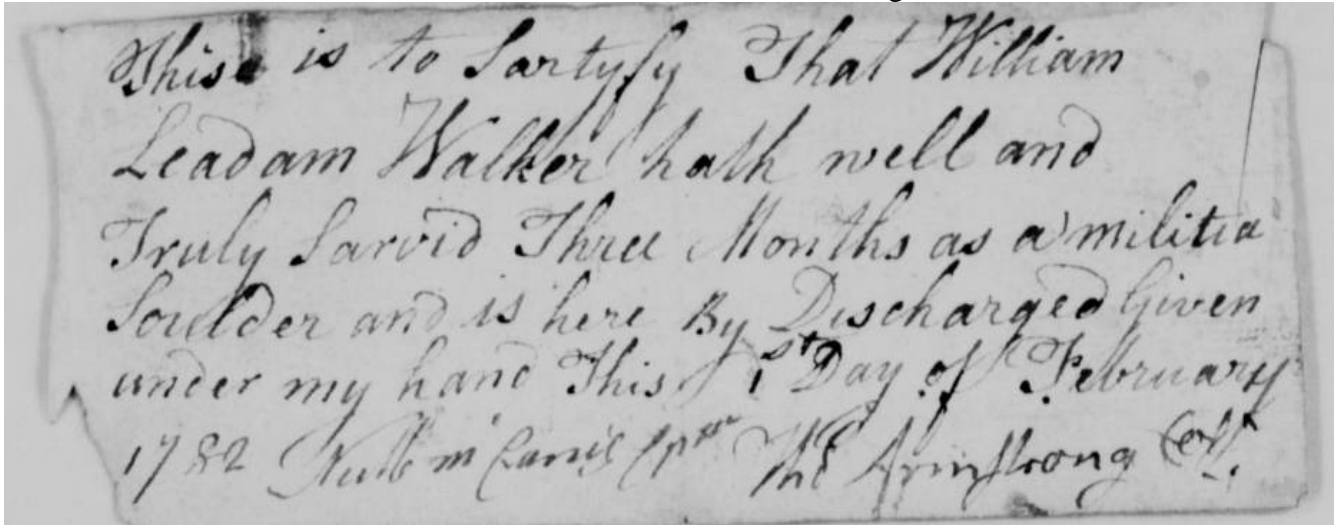 This is to Sartyfy That William
Leadam Walker hath well and
Truly Sarvid Three Months as a militia
Soulder and is here By Discharged Given
under my hand This 1st Day of February
1782 Armstrong